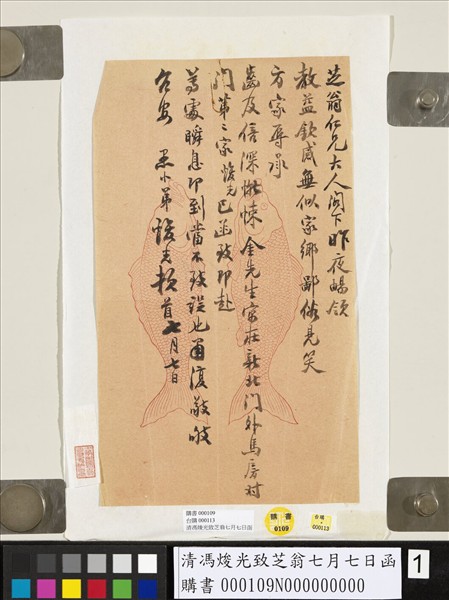 芝翁仁兄大人閣下昨夜暢領
教益欽感無似家鄉鄙俗見笑
方家辱承
齒及倍深慚悚金先生家在新北門外馬房村
焌光已函致即赴
處瞬息即到當不致誤也肅復敬頌
台安 小弟焌光頓首七月七日
購書 000109
台購 000113
清馮焌光致芝翁七月七日函
購書
0109
台購
000113
清馮焌光致芝翁七月七日函
購書 000109N000000000
1